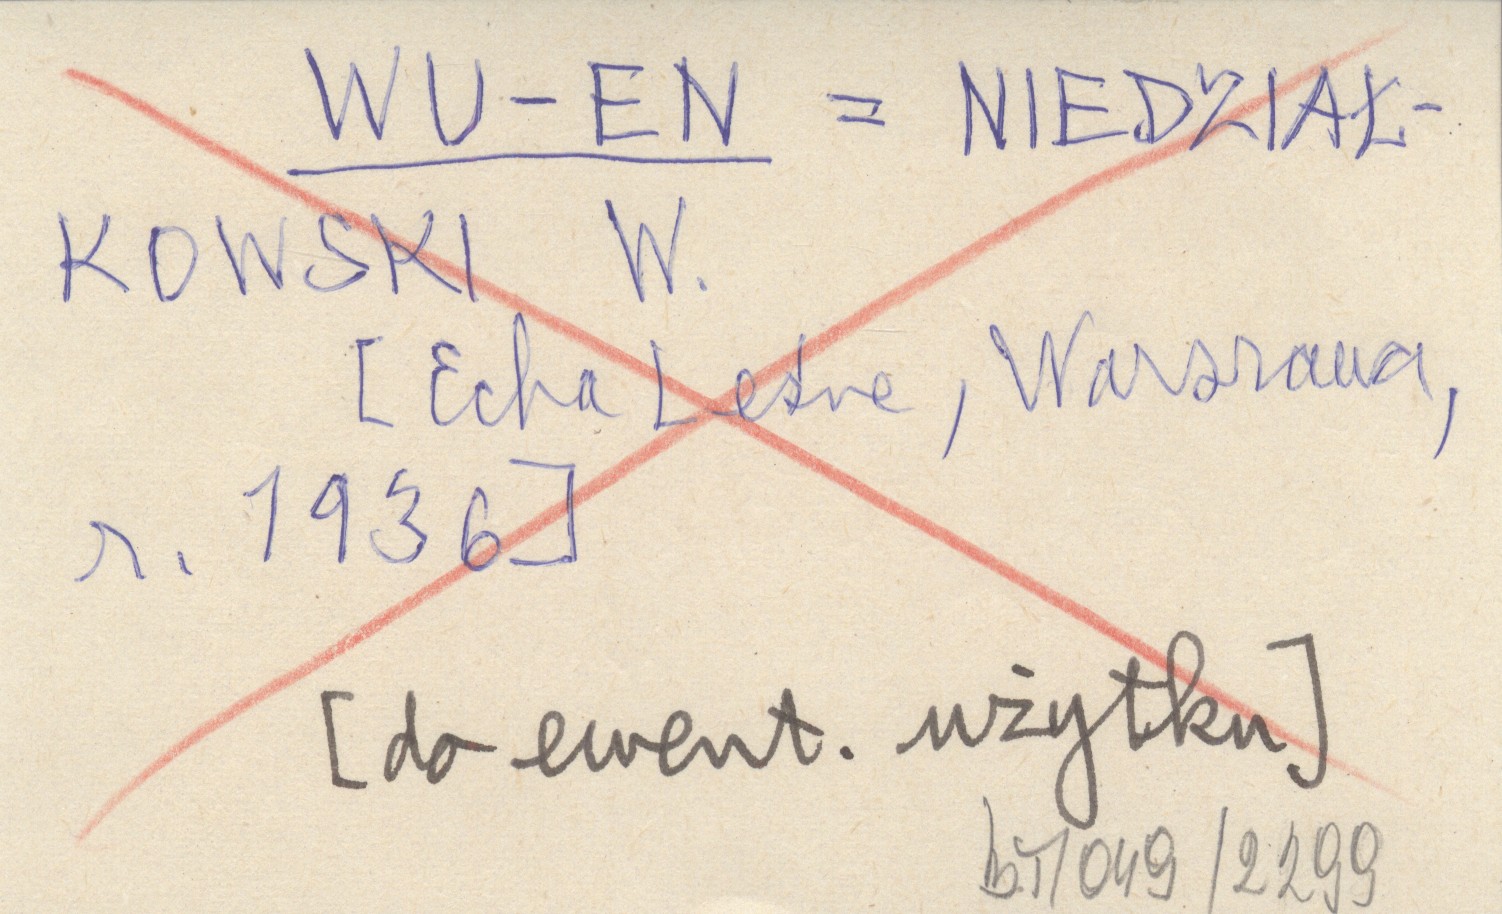 WU-EN = NIEDZIAŁ-
KOWSKI W.
[Echa Leśne, Warszawa,
r. 1936]
[do ewent. użytku]
/049/2299